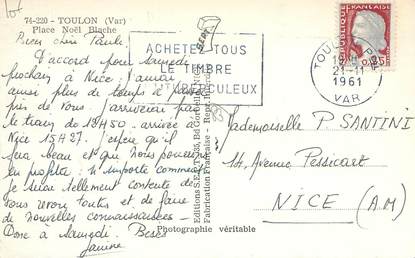 74-220 - TOULON (Var)
Place Noël Blache
Bien chère Paule
D'accord pour Samedi
prochain à Nice. J'aurai
ainsi plus de temps à passer
près de vous. J'arriverai par
le train de 13H50 - arrivée à
Nice 15H27. J'espère qu'il
fera beau et que nous pourrons
en profiter. N'importe comment
je serai tellement contente de
vous revoir toutes et de faire
de nouvelles connaissances -
Donc à Samedi. Bises
Janine
ACHETEZ TOUS
LE TIMBRE
ANTITUBERCULEUX
Editions S.E.A.R.T. 35, Bd
Fabrication Française - Repr. Interdite
Photographie véritable
REPUBLIQUE FRANÇAISE
0,25
TOULON
21-11
1961
VAR
Mademoiselle P. SANTINI
14, Avenue Pessicart
NICE (A.M)